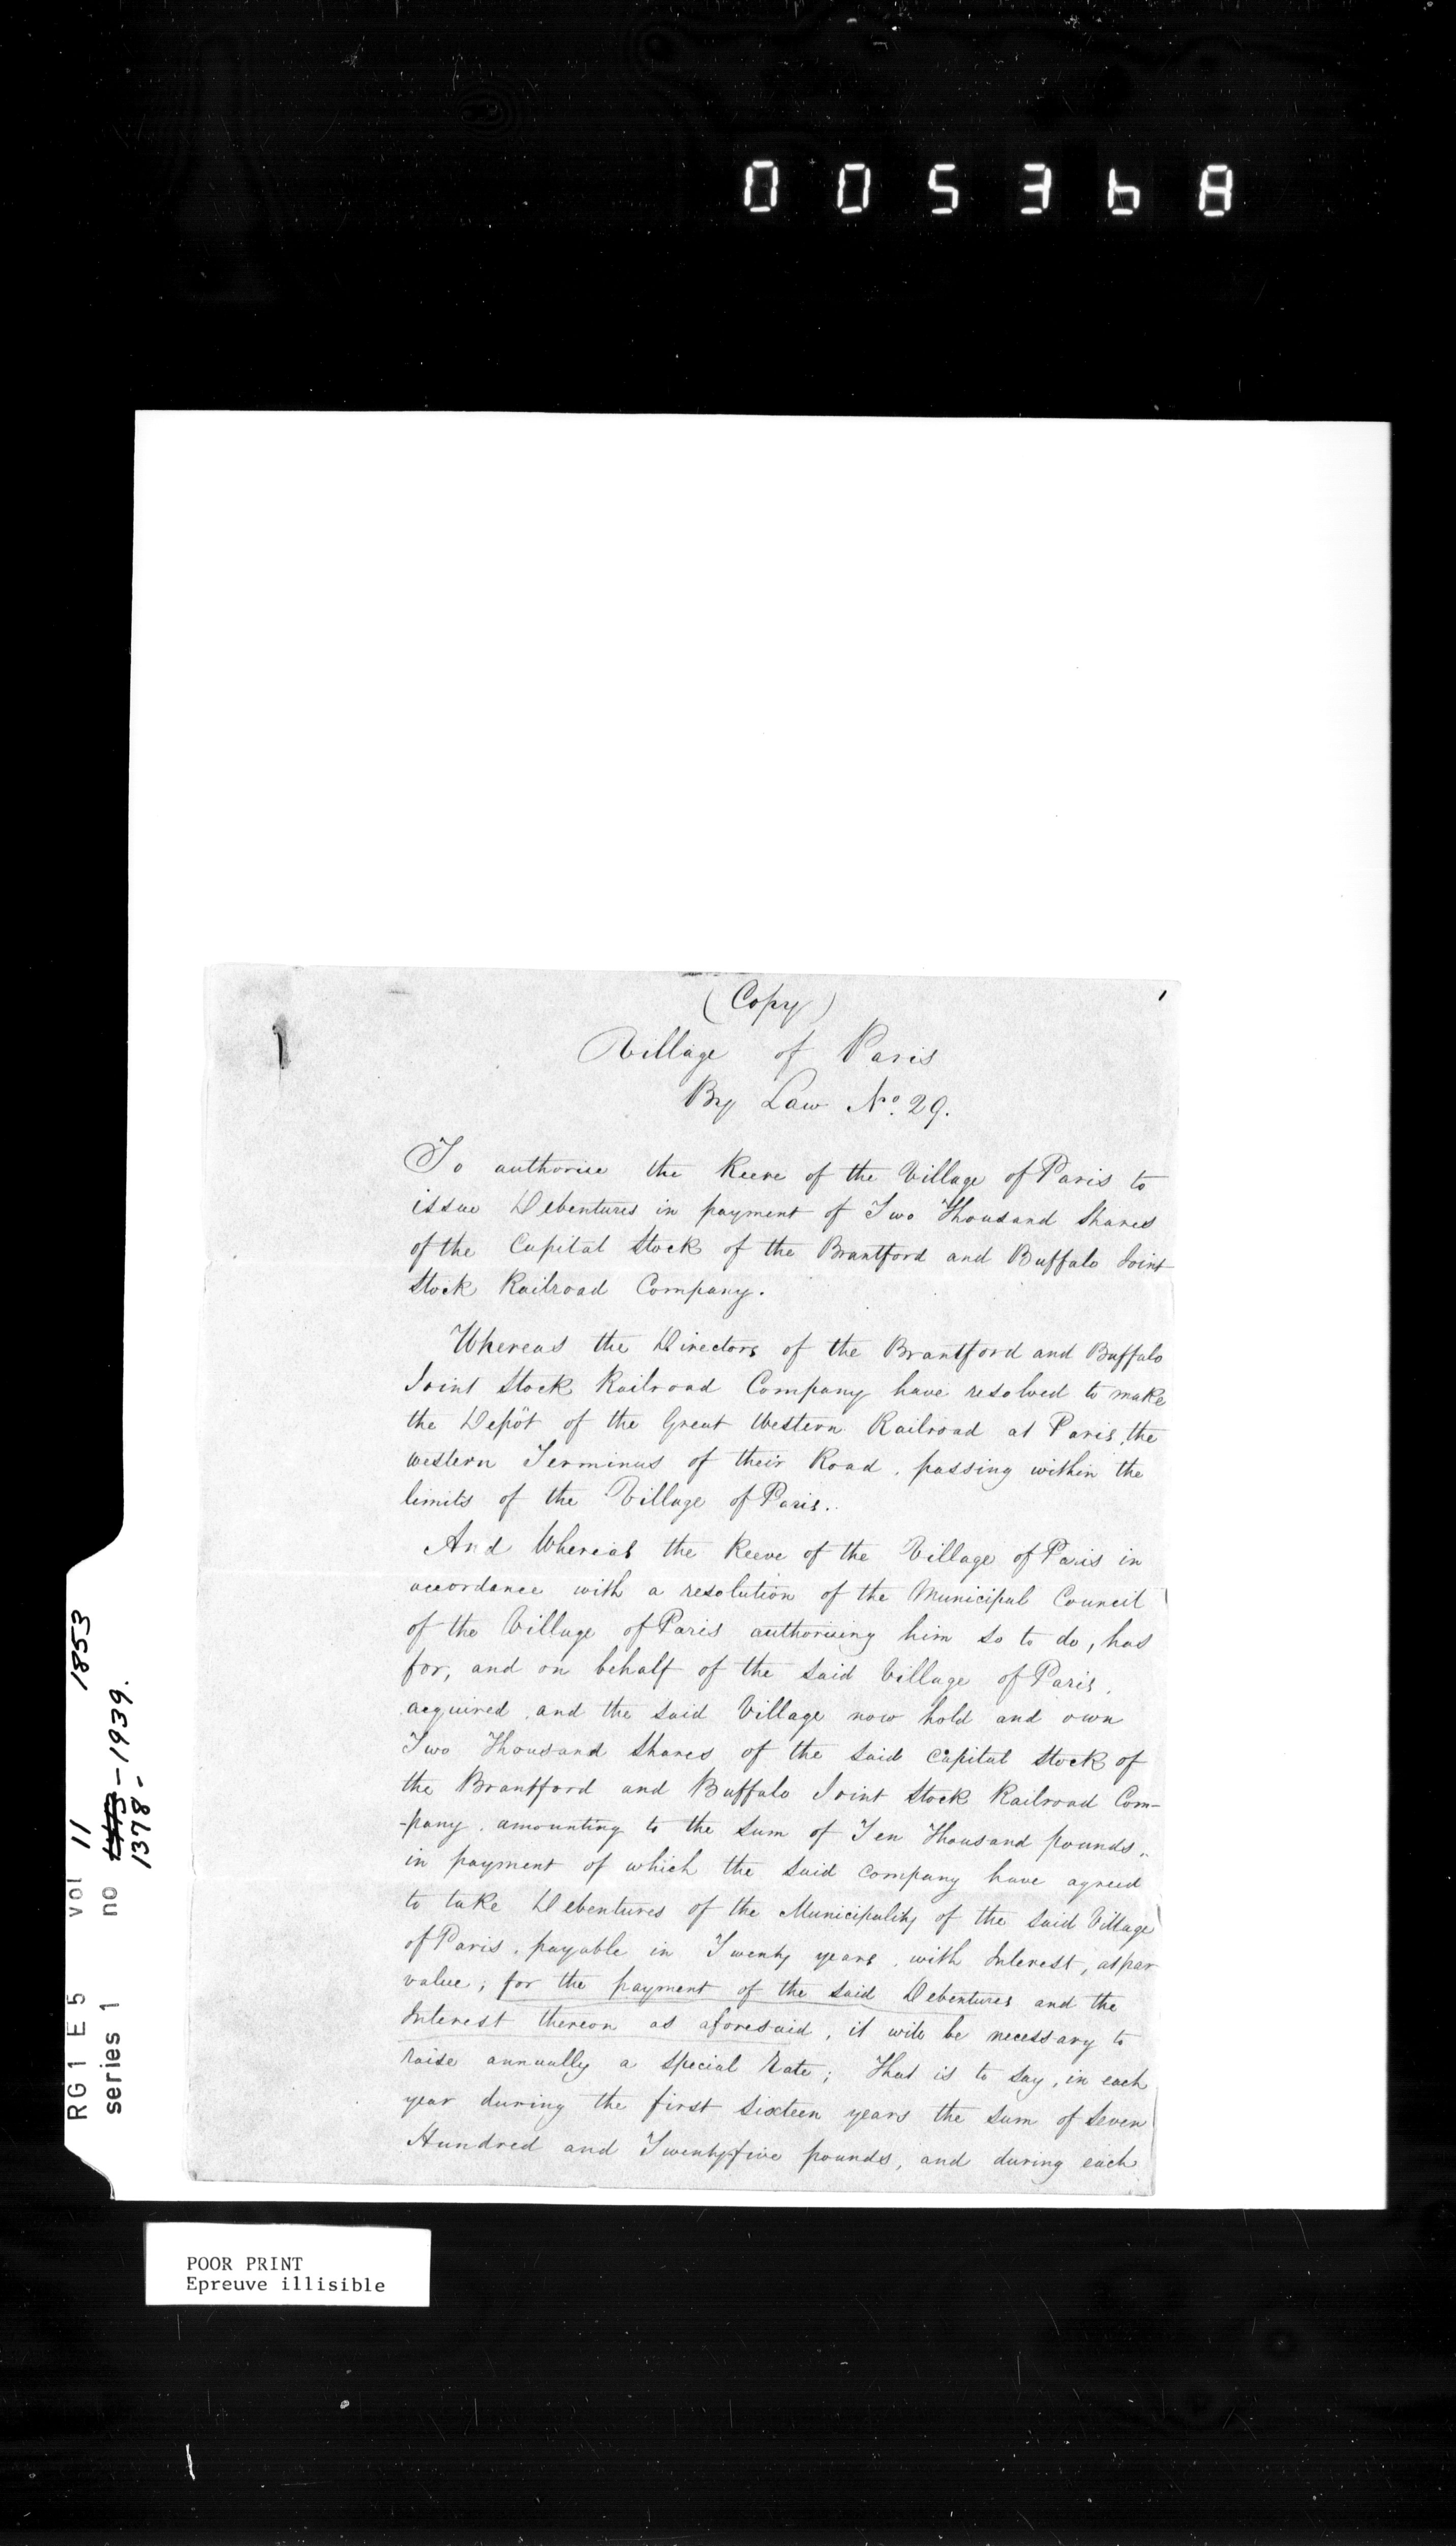 005368
(Copy)
1
Village of Paris
By Law No. 29.
To authorise the Reeve of the Village of Paris to
issue Debentures in payment of Two Thousand Shares
of the Capital Stock of the Brantford and Buffalo Joint
Stock Railroad Company.
Whereas the Directors of the Brantford and Buffalo
Joint Stock Railroad Company have resolved to make
the Depôt of the Great Western Railroad at Paris, the
western Terminus of their Road, passing within the
limits of the Village of Paris.
And Whereas the Reeve of the Village of Paris in
accordance with a resolution of the Municipal Council
of the Village of Paris authorising him so to do, has
for, and on behalf of the said Village of Paris,
acquired, and the said Village now hold and own
Two Thousand Shares of the said Capital Stock of
the Brantford and Buffalo Joint Stock Railroad Com-
-pany, amounting to the sum of Ten Thousand pounds,
in payment of which the said company have agreed
to take Debentures of the Municipality of the said Village
of Paris, payable in Twenty years, with Interest, at par
value; for the payment of the said Debentures and the
Interest thereon as aforesaid, it will be necessary to
raise annually a special Rate; That is to say, in each
year during the first sixteen years the sum of Seven
Hundred and Twenty five pounds, and during each
RG 1 E 5 vol 11 1853
series 1 no 1378-1939.
POOR PRINT
Epreuve illisible